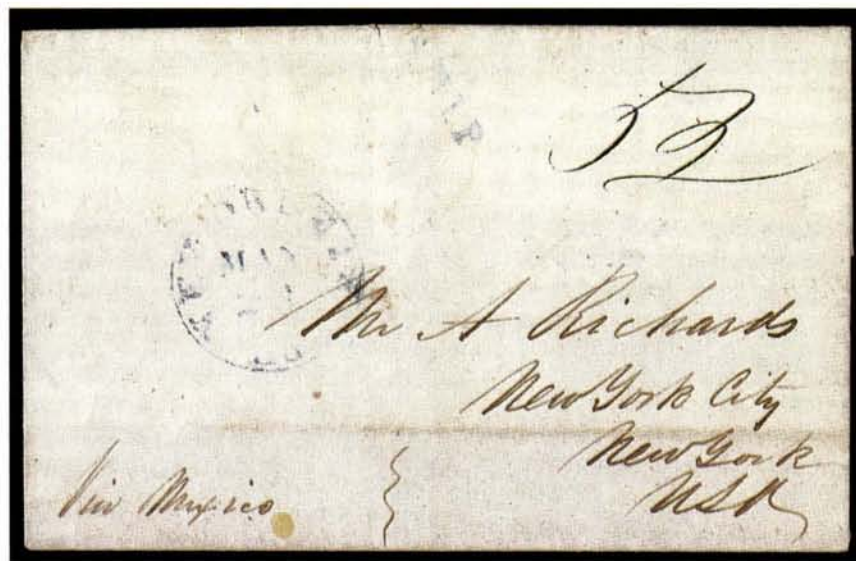 52
MAY
Mr A Richards
New York City
New York
USA
Via Mexico